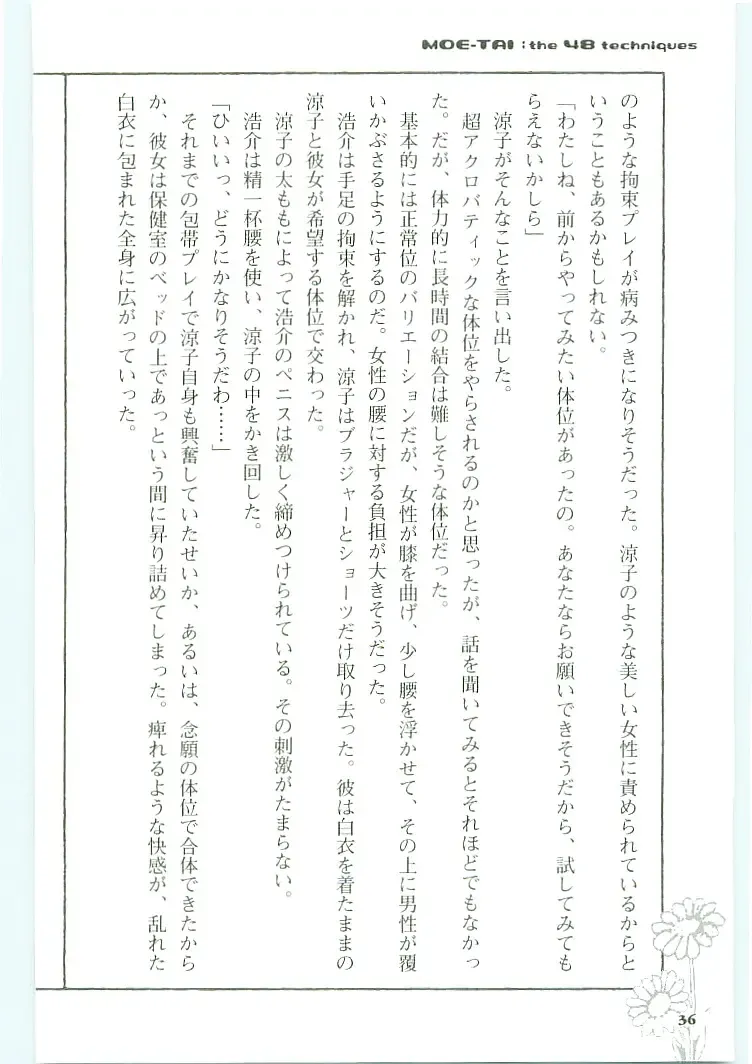 MOE-TAI : the 48 techniques
のような拘束プレイが病みつきになりそうだった。涼子のような美しい女性に責められているからと
いうこともあるかもしれない。
「わたしね、前からやってみたい体位があったの。あなたならお願いできそうだから、試してみても
らえないかしら」
涼子がそんなことを言い出した。
超アクロバティックな体位をやらされるのかと思ったが、話を聞いてみるとそれほどでもなかっ
た。だが、体力的に長時間の結合は難しそうな体位だった。
基本的には正常位のバリエーションだが、女性が膝を曲げ、少し腰を浮かせて、その上に男性が覆
いかぶさるようにするのだ。女性の腰に対する負担が大きそうだった。
浩介は手足の拘束を解かれ、涼子はブラジャーとショーツだけ取り去った。彼は白衣を着たままの
涼子と彼女が希望する体位で交わった。
涼子の太ももによって浩介のペニスは激しく締めつけられている。その刺激がたまらない。
浩介は精一杯腰を使い、涼子の中をかき回した。
「ひいいっ、どうにかなりそうだわ……」
それまでの包帯プレイで涼子自身も興奮していたせいか、あるいは、念願の体位で合体できたから
か、彼女は保健室のベッドの上であっという間に昇り詰めてしまった。痺れるような快感が、乱れた
白衣に包まれた全身に広がっていった。
36